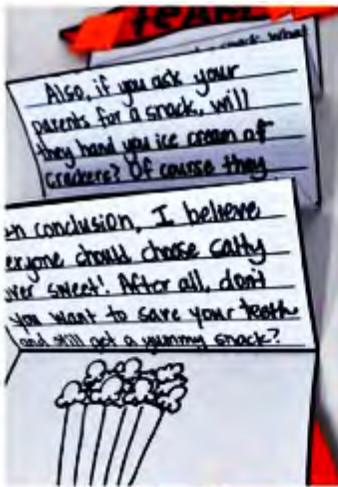 TEAM
what
Also, if you ask your
parents for a snack, will
they hand you ice cream or
crackers? Of course they
In conclusion, I believe
eryone should choose salty
ver sweet! After all, don't
you want to save your teeth
and still get a yummy snack?